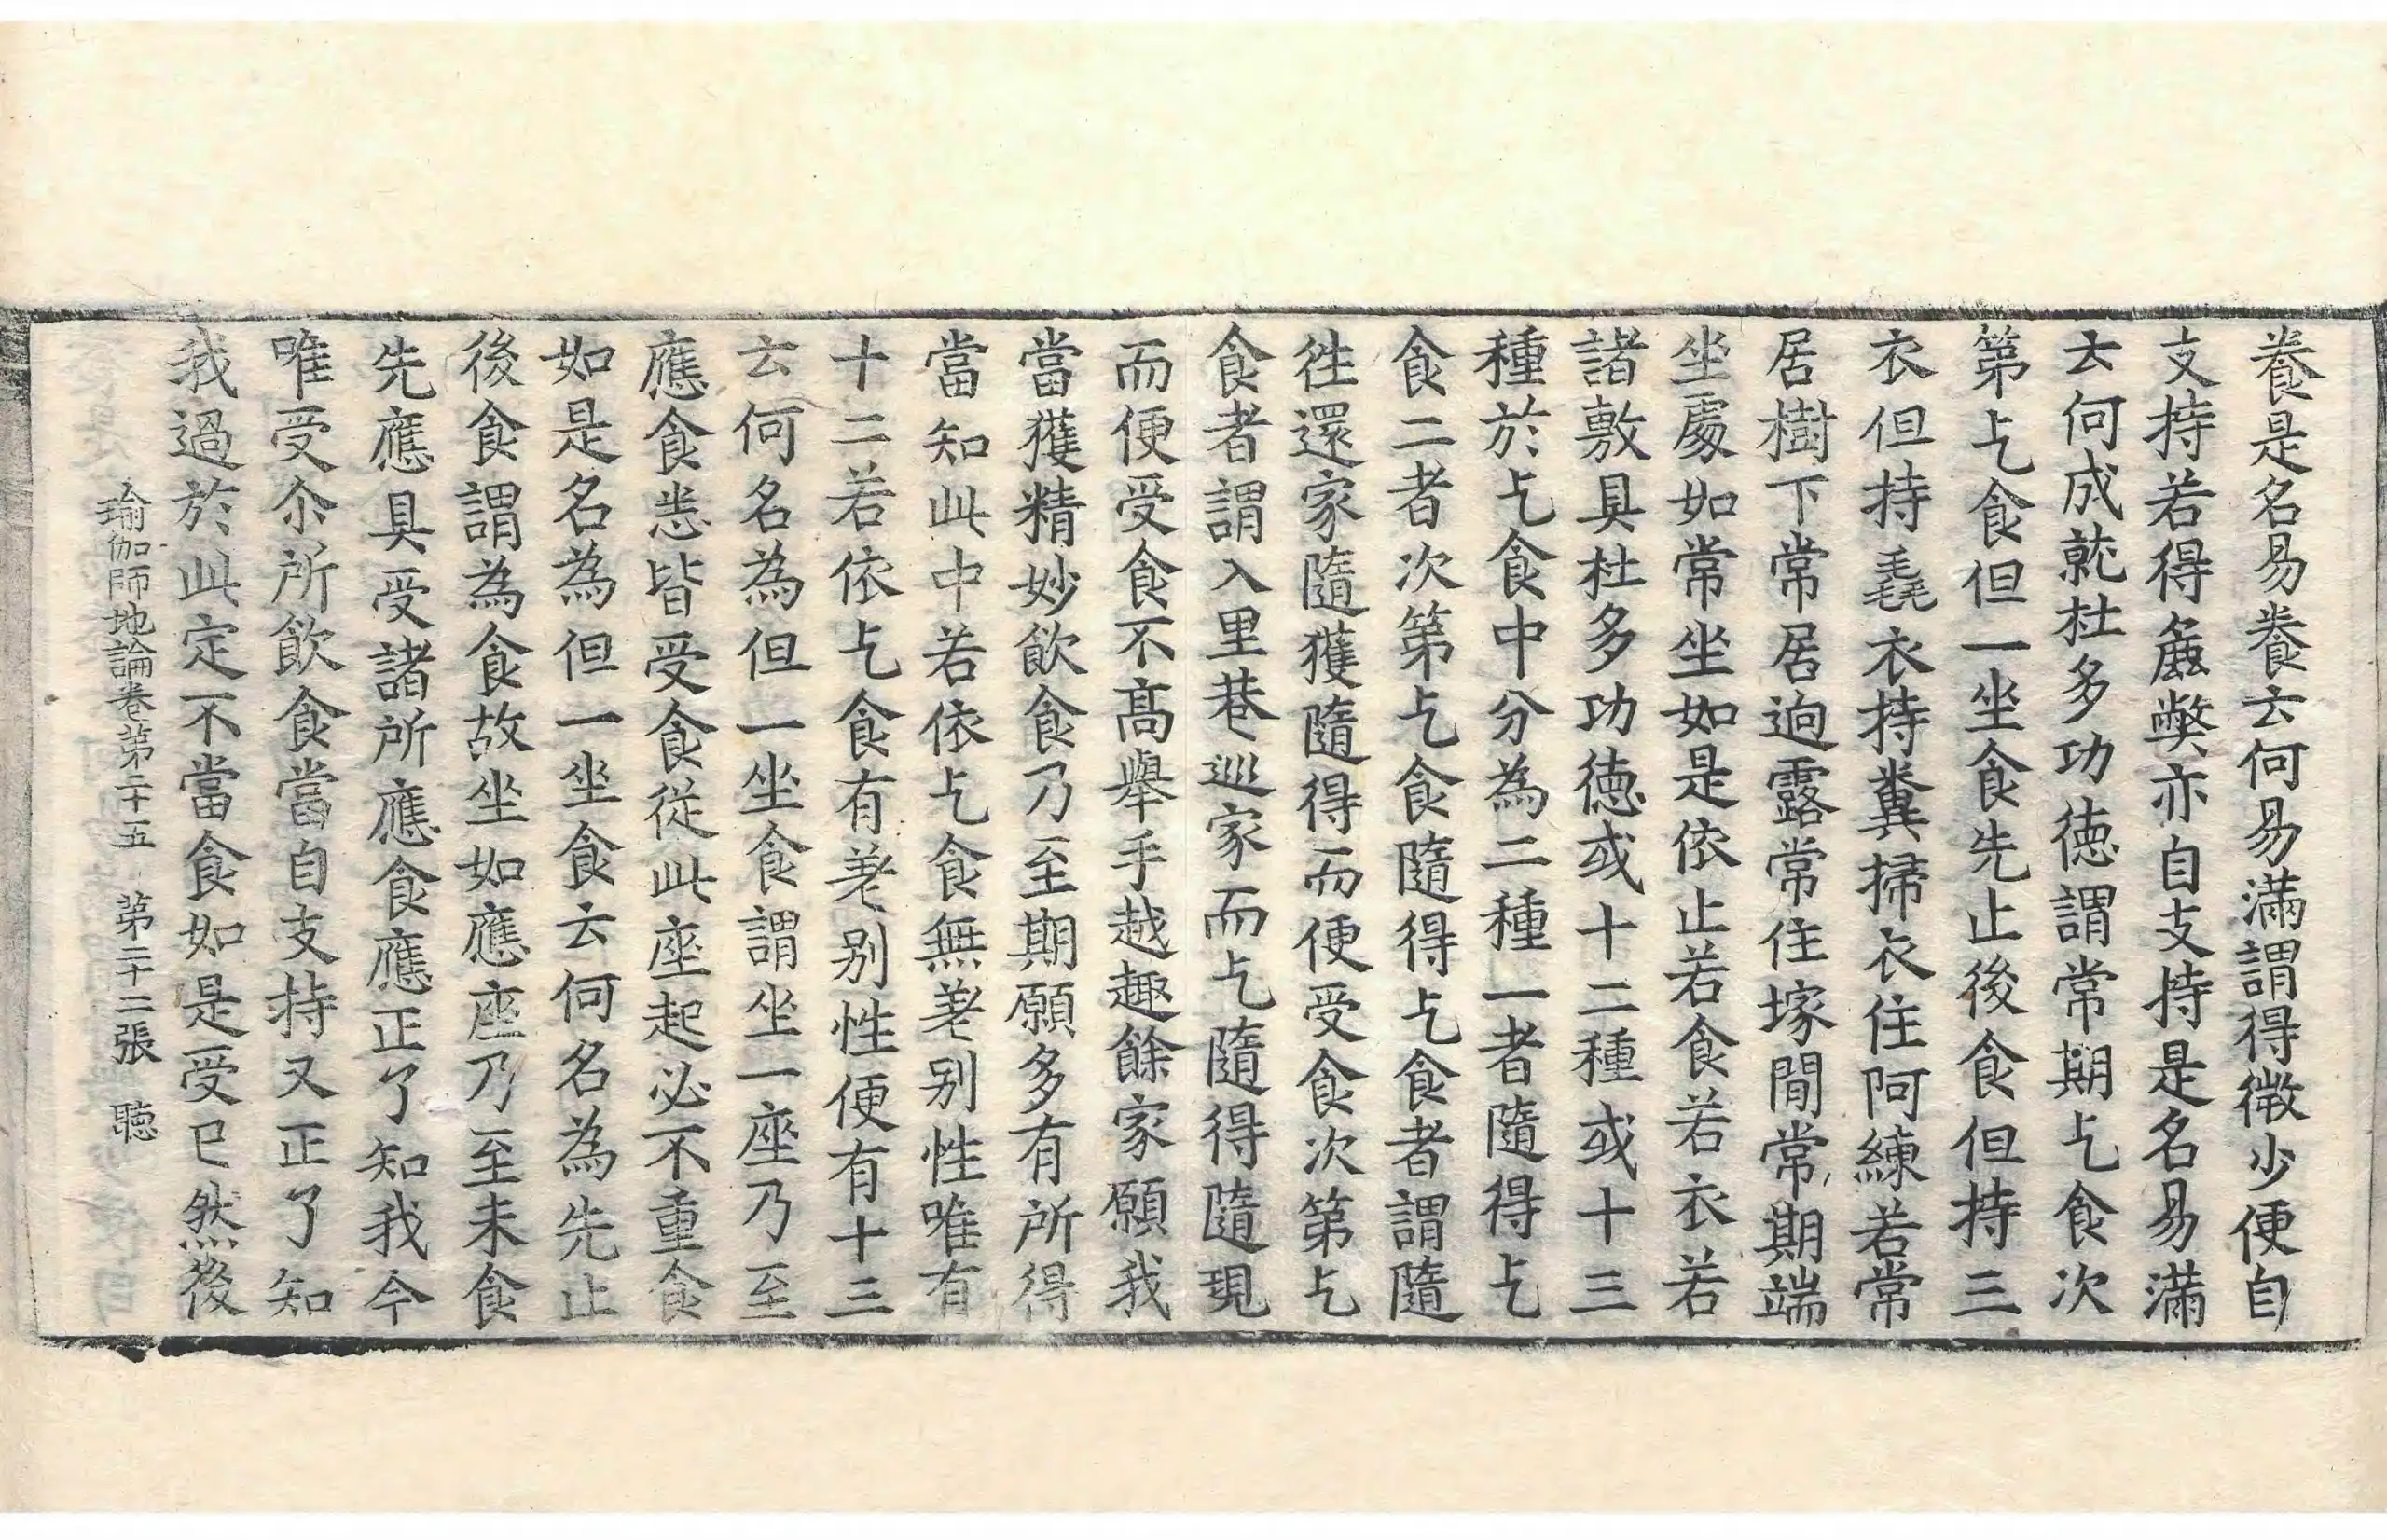 養是名易養云何易滿謂得微少便自
支持若得麁弊亦自支持是名易滿
云何成就杜多功徳謂常期乞食次
第乞食但一坐食先止後食但持三
衣但持毳衣持糞掃衣住阿練若常
居樹下常居迥露常住塚間常期端
坐處如常坐如是依止若食若衣若
諸敷具杜多功徳或十二種或十三
種於乞食中分為二種一者隨得乞
食二者次第乞食隨得乞食者謂隨
往還家隨獲隨得而便受食次第乞
食者謂入里巷巡家而乞隨得隨現
而便受食不髙舉手越趣餘家願我
當獲精妙飲食乃至期願多有所得
當知此中若依乞食無差别性唯有
十二若依乞食有差别性便有十三
云何名為但一坐食謂坐一座乃至
應食悉皆受食從此座起必不重食
如是名為但一坐食云何名為先止
後食謂為食故坐如應座乃至未食
先應具受諸所應食應正了知我今
唯受尒所飲食當自支持又正了知
我過於此定不當食如是受已然後
瑜伽師地論卷第二十五 第二十二張 聴